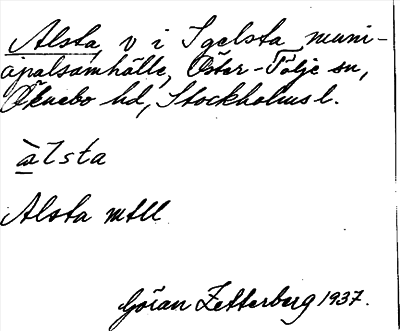 Alsta, v i Igelsta muni-
cipalsamhälle, Öster-Tälje sn,
Öknebo hd, Stockholms l.
àlsta
Alsta mtll
Göran Zetterberg 1937.